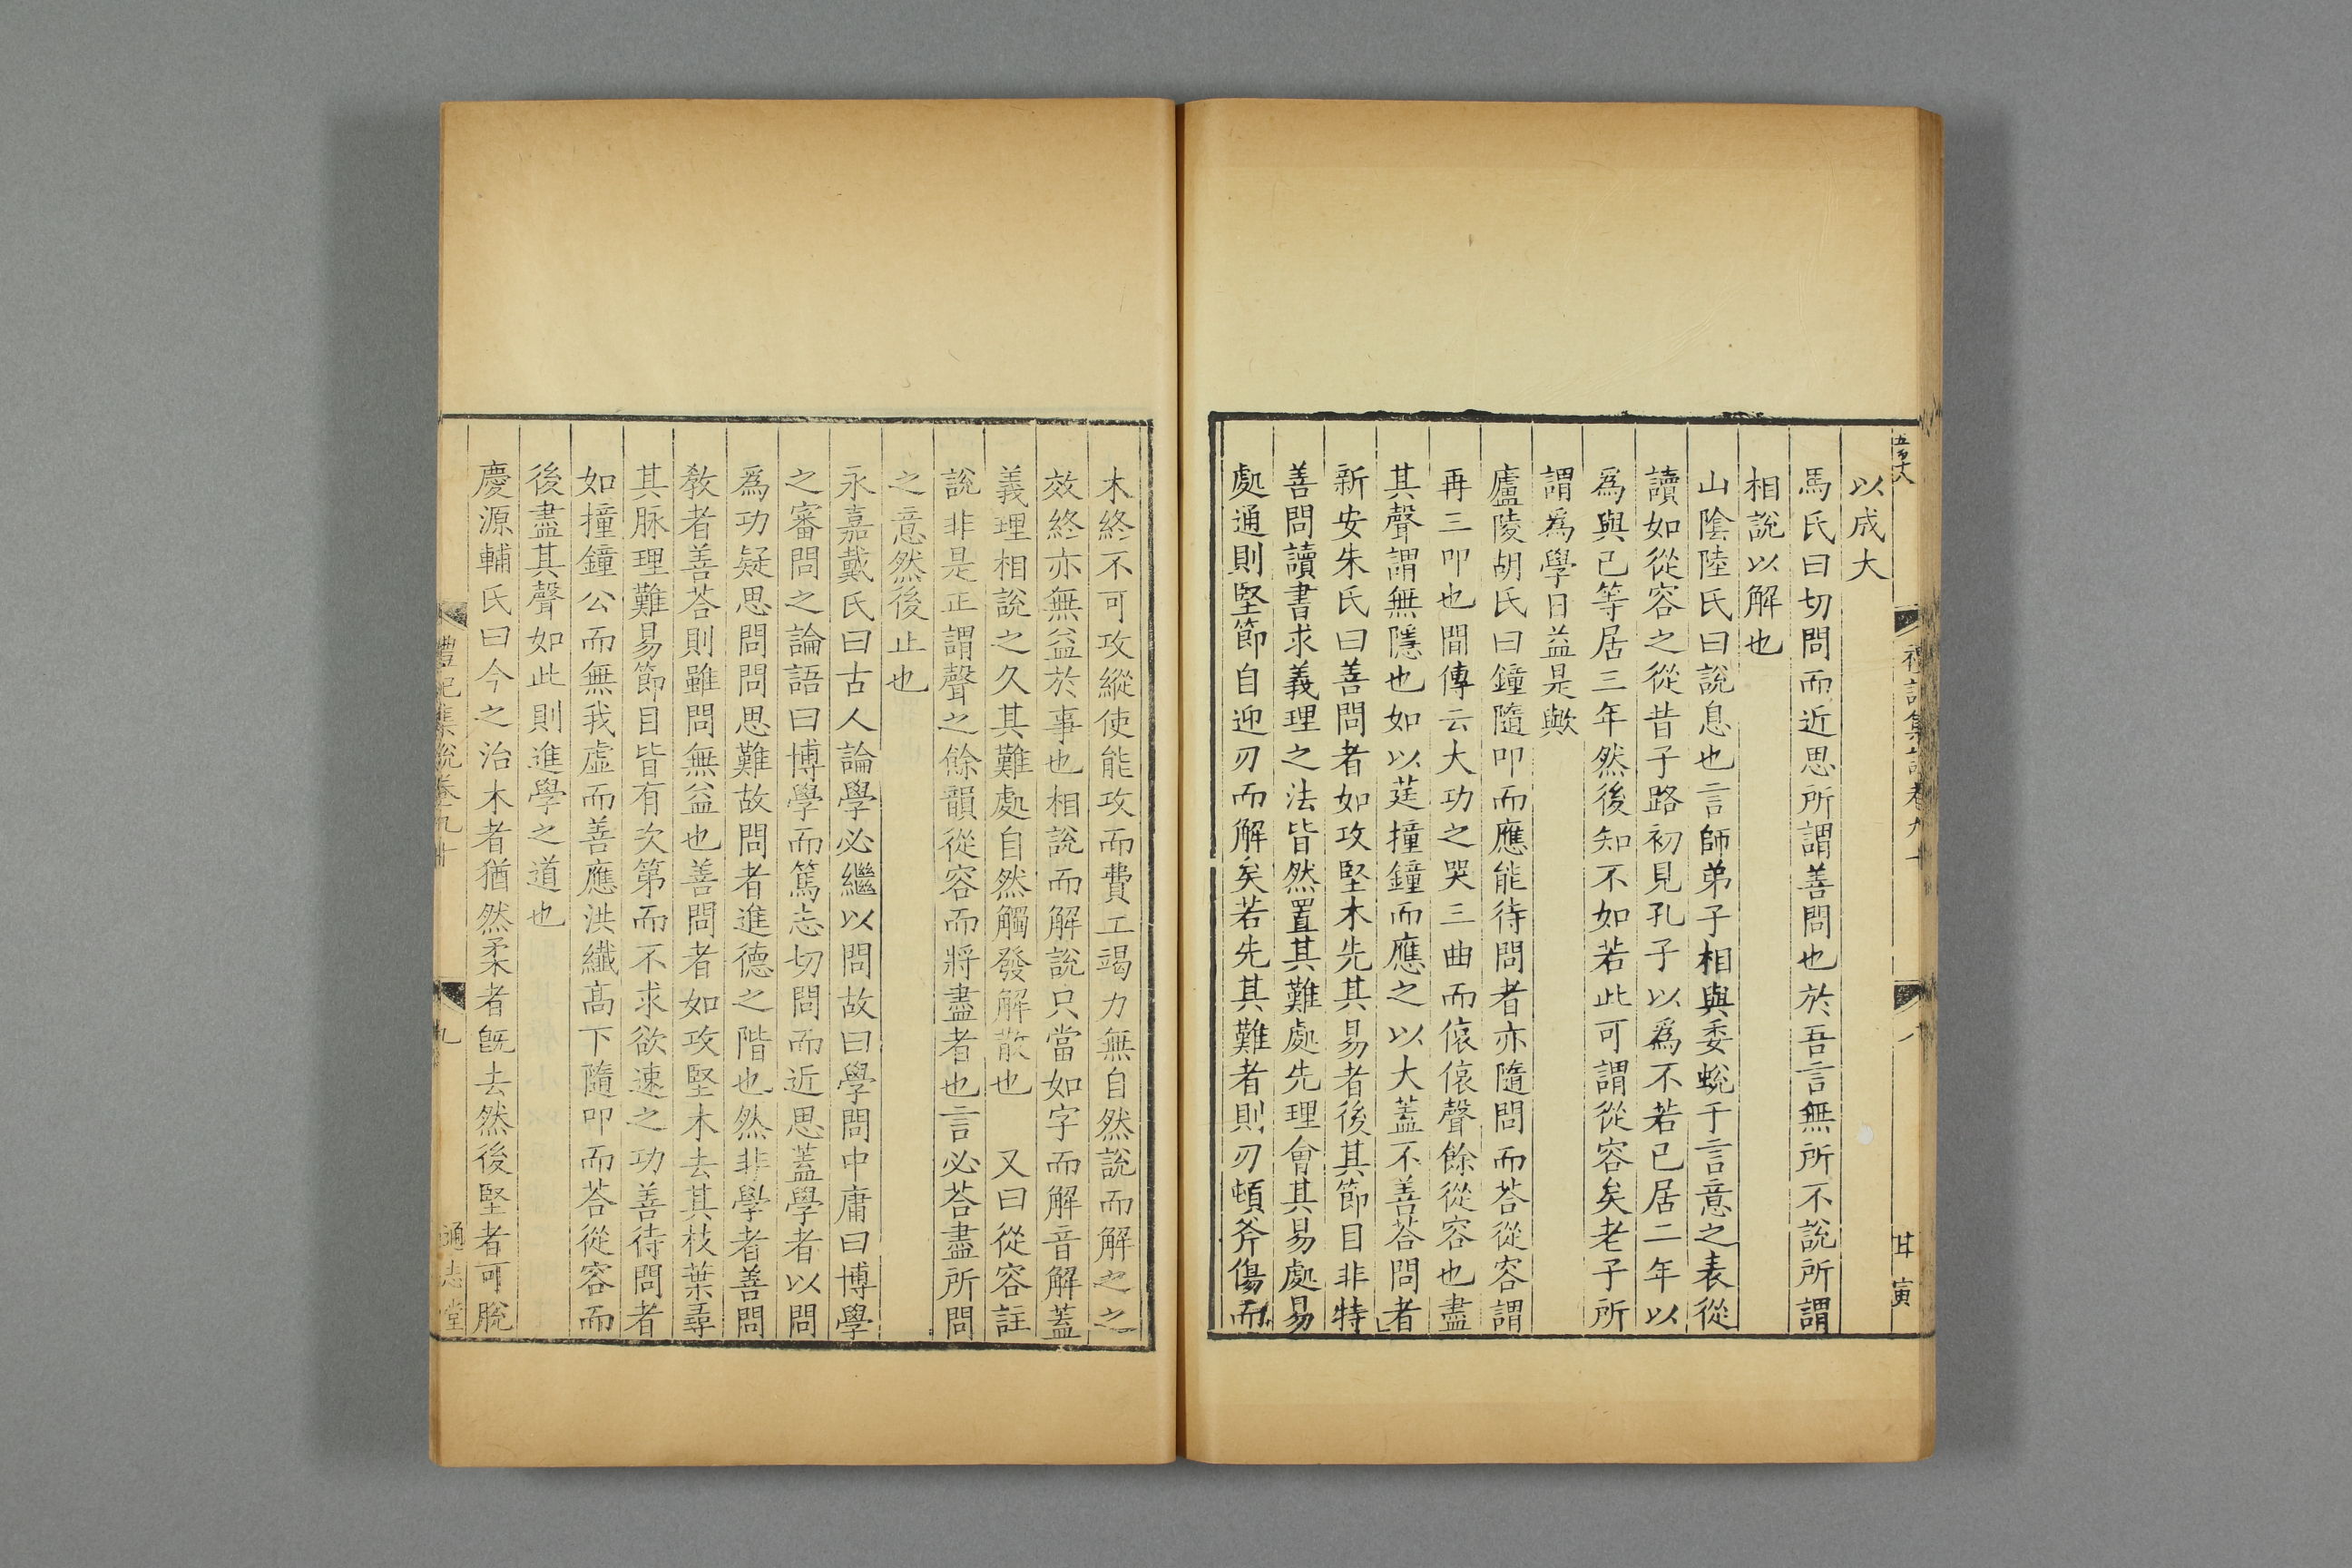 以成大
馬氏曰切問而近思所謂善問也於吾言無所不說所謂
相說以解也
山陰陸氏曰說息也言師弟子相與委蛻于言意之表從
讀如從容之從昔子路初見孔子以爲不若已居二年以
爲與已等居三年然後知不如若此可謂從容矣老子所
謂爲學日益是歟
廬陵胡氏曰鐘隨叩而應能待問者亦隨問而荅從容謂
再三叩也間傳云大功之哭三曲而偯偯聲餘從容也盡
其聲謂無隱也如以莛撞鐘而應之以大蓋不善荅問者
新安朱氏曰善問者如攻堅木先其易者後其節目非特
善問讀書求義理之法皆然置其難處先理會其易處易
處通則堅節自迎刃而解矣若先其難者則刃頓斧傷而
木終不可攻縱使能攻而費工竭力無自然說而解之之
效終亦無益於事也相說而解說只當如字而解音解蓋
義理相說之久其難處自然觸發解散也　又曰從容註
說非是正謂聲之餘韻從容而將盡者也言必荅盡所問
之意然後止也
永嘉戴氏曰古人論學必繼以問故曰學問中庸曰博學
之審問之論語曰博學而篤志切問而近思蓋學者以問
爲功疑思問問思難故問者進德之階也然非學者善問
敎者善荅則雖問無益也善問者如攻堅木去其枝葉尋
其脉理難易節目皆有次第而不求欲速之功善待問者
如撞鐘公而無我虛而善應洪纖髙下隨叩而荅從容而
後盡其聲如此則進學之道也
慶源輔氏曰今之治木者猶然柔者旣去然後堅者可脫
禮記集說卷九十
九
通志堂